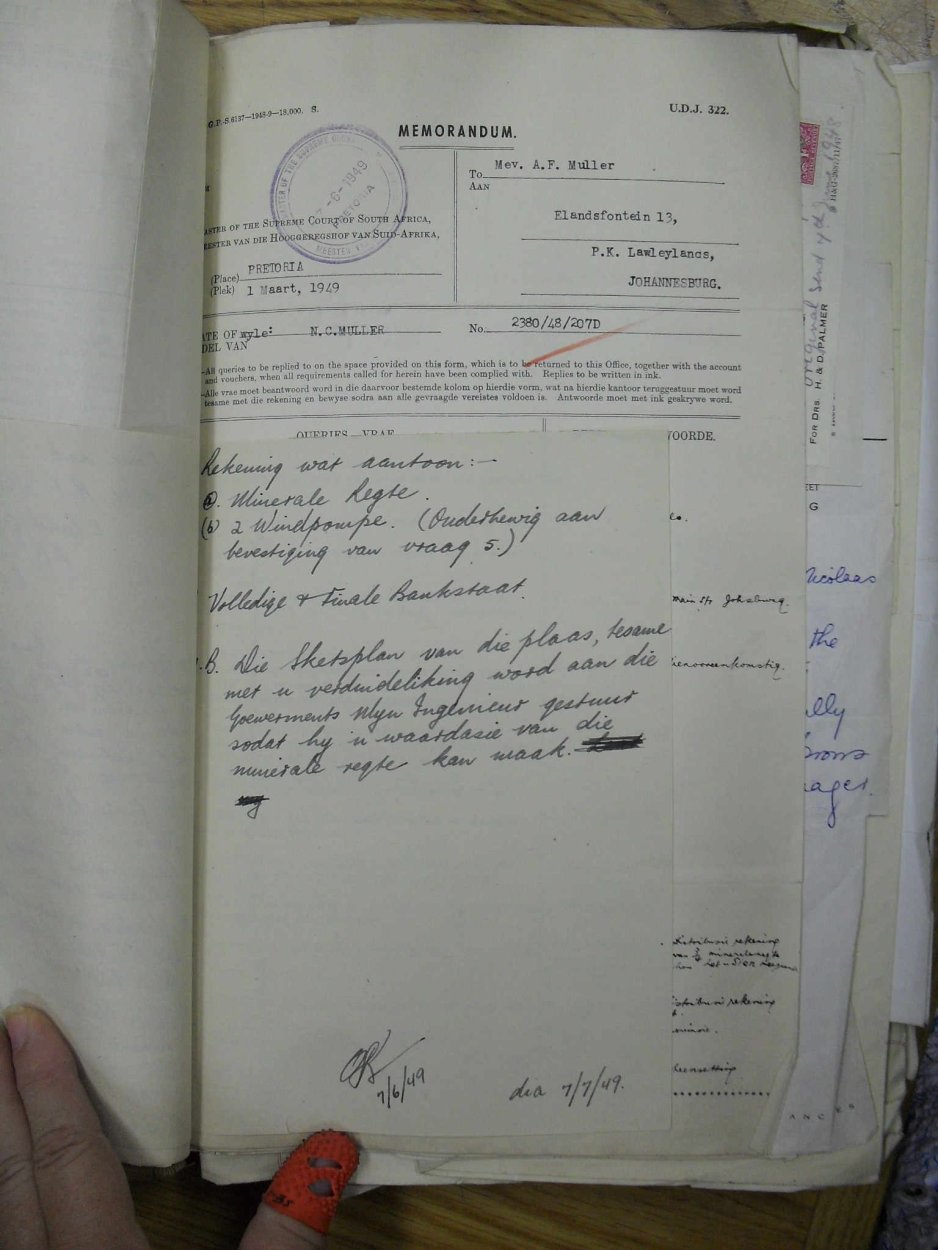 G.P.-S.6137—1948-9—18,000. S.
U.D.J. 322.
MEMORANDUM.
MASTER OF THE SUPREME COURT
-6-1949
PRETORIA
MEESTER
ASTER OF THE SUPREME COURT OF SOUTH AFRICA,
EESTER VAN DIE HOOGGEREGSHOF VAN SUID-AFRIKA,
(Place) PRETORIA
(Plek) 1 Maart, 1949
To Mev. A.F. Muller
AAN
Elandsfontein 13,
P.K. Lawleylands,
JOHANNESBURG.
ATE OF wyle: N.C.MULLER
DEL VAN
No. 2380/48/207D
—All queries to be replied to on the space provided on this form, which is to be returned to this Office, together with the account
and vouchers, when all requirements called for herein have been complied with. Replies to be written in ink.
—Alle vrae moet beantwoord word in die daarvoor bestemde kolom op hierdie vorm, wat na hierdie kantoor teruggestuur moet word
tesame met die rekening en bewyse sodra aan alle gevraagde vereistes voldoen is. Antwoorde moet met ink geskrywe word.
QUERIES—VRAE
WOORDE.
Rekening wat aantoon:—
(a). Minerale Regte.
(b) 2 Windpompe. (Onderhewig aan
bevestiging van vraag 5.)
Volledige + Finale Bankstaat.
B. Die Sketsplan van die plaas, tesame
met 'n verduideliking word aan die
Goewerments Myn Ingenieur gestuur
sodat hy 'n waardasie van die
minerale regte kan maak.
7/6/49
dia 7/7/49.
Main St. Johsburg.
ienooreenkomstig.
distribusie rekening
distribusie rekening
original send 7th June 1948
FOR DRS. H. & D. PALMER
EET
G
Nicolaas
the
ally
ager.
ANCES